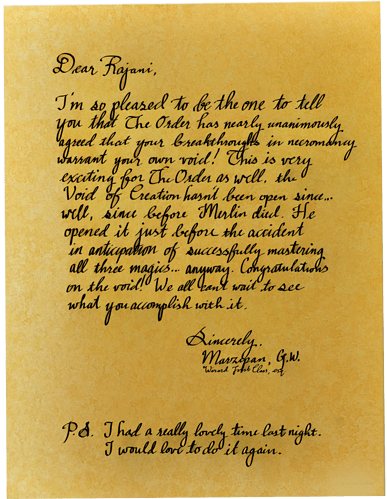 Dear Rajani,
I'm so pleased to be the one to tell
you that The Order has nearly unanimously
agreed that your breakthroughs in necromancy
warrant your own void! This is very
exciting for The Order as well. the
Void of Creation hasn't been open since...
well, since before Merlin died. He
opened it just before the accident
in anticipation of successfully mastering
all three magics... anyway. Congratulations
on the void! We all can't wait to see
what you accomplish with it.
Sincerely,
Marzopan, G.W.
esq
P.S. I had a really lovely time last night.
I would love to do it again.